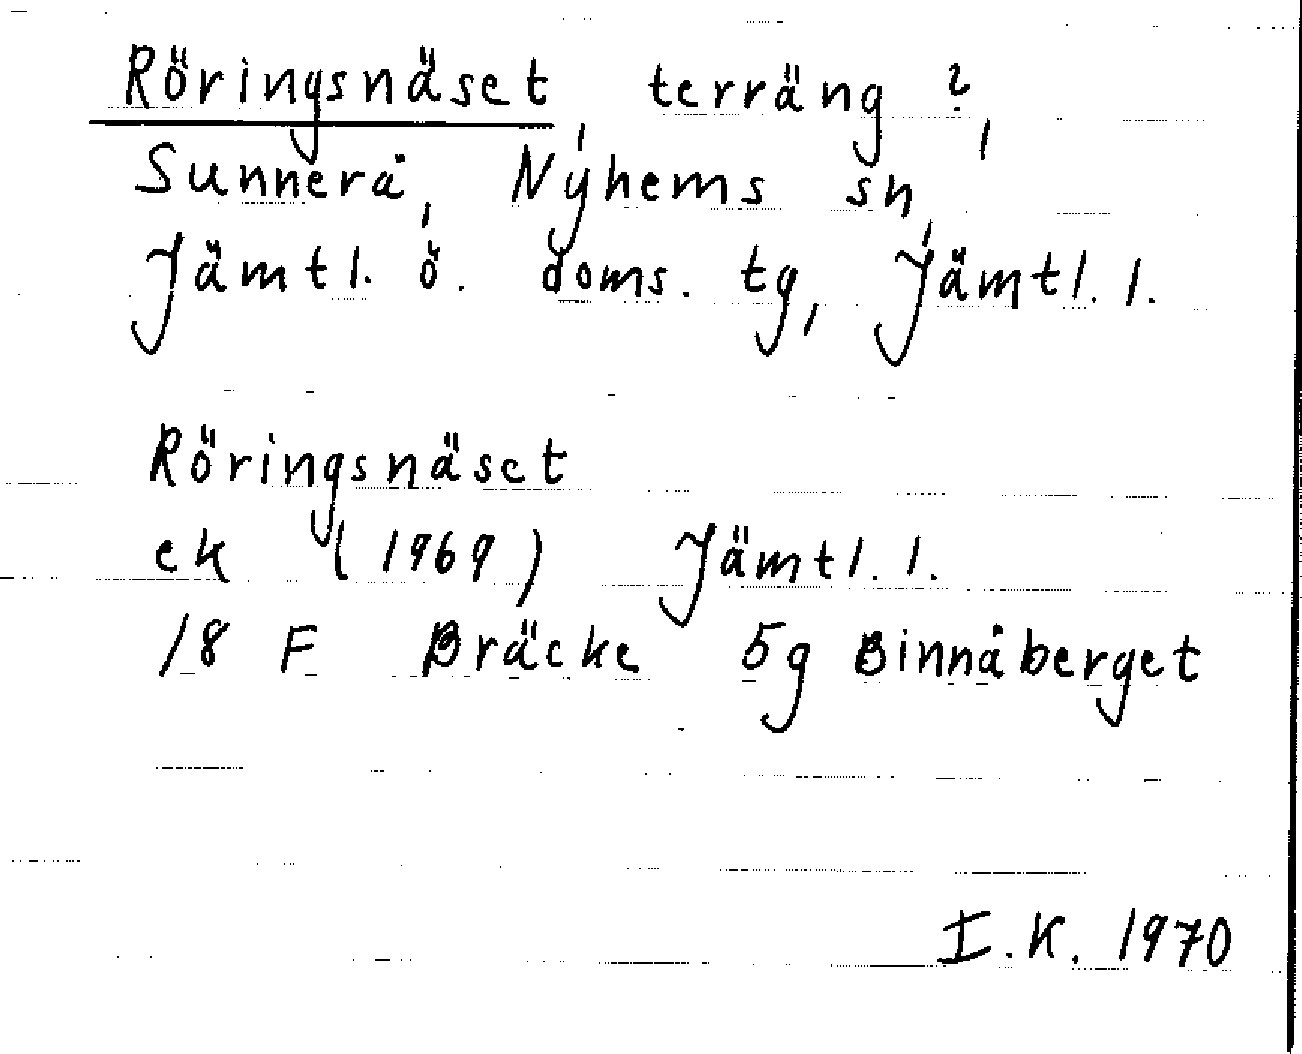 Röringsnäset, terräng?,
Sunnerå, Nyhems sn,
Jämtl. ö. doms. tg, Jämtl. l.
Röringsnäset
ek (1969) Jämtl. l.
18 F Bräcke 5g Binnåberget
I.K. 1970